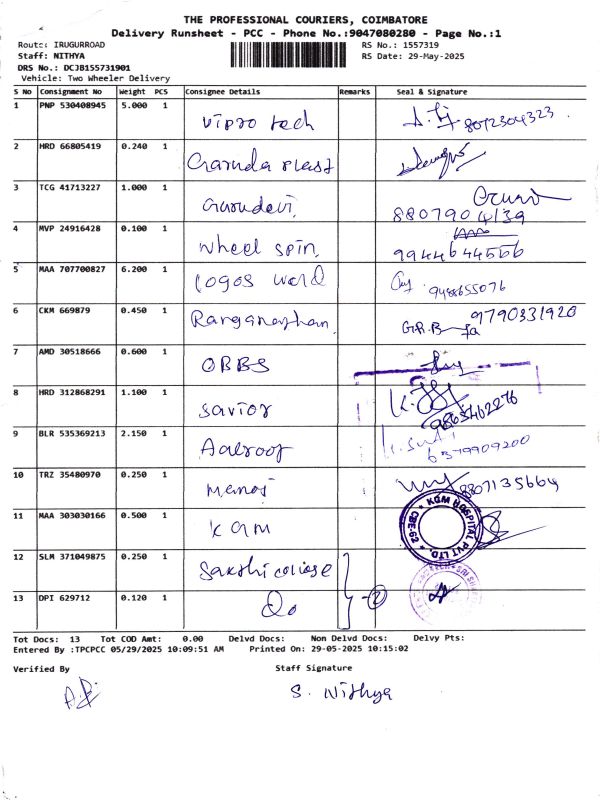 THE PROFESSIONAL COURIERS, COIMBATORE
Delivery Runsheet - PCC - Phone No.:9047080280 - Page No.:1
Route: IRUGURROAD RS No.: 1557319
Staff: NITHYA RS Date: 29-May-2025
DRS No.: DCJB155731901
Vehicle: Two Wheeler Delivery
S No Consignment No Weight PCS Consignee Details Remarks Seal & Signature
1 PNP 530408945 5.000 1 Vipro tech 8072304323
2 HRD 66805419 0.240 1 Garuda Plast
3 TCG 41713227 1.000 1 Gurudevi 8807904139
4 MVP 24916428 0.100 1 Wheel spin 9944644566
5 MAA 707700827 6.200 1 Logos world 9488655076
6 CKM 669879 0.450 1 Ranganathan G.R.B 9790331920
7 AMD 30518666 0.600 1 OBBS
8 HRD 312868291 1.100 1 Savior 9865462276
9 BLR 535369213 2.150 1 6379909200
10 TRZ 35480970 0.250 1 Manoj 8807135664
11 MAA 303030166 0.500 1 KGM KGM HOSPITAL PVT LTD. CBE-62
12 SLM 371049875 0.250 1 Sakthi college
13 DPI 629712 0.120 1 Do 2
Tot Docs: 13 Tot COD Amt: 0.00 Delvd Docs: Non Delvd Docs: Delvy Pts:
Entered By :TPCPCC 05/29/2025 10:09:51 AM Printed On: 29-05-2025 10:15:02
Verified By Staff Signature
S. Nithya